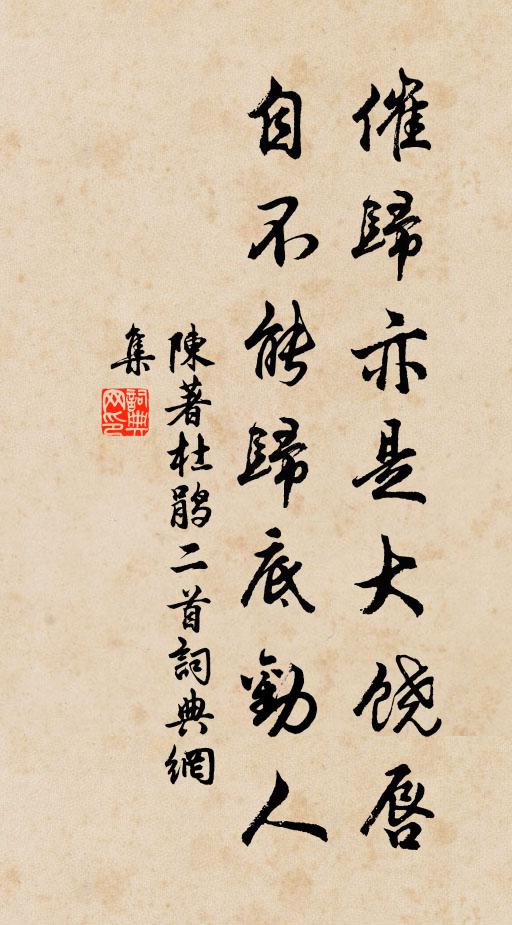 催歸亦是大饶唇
自不能歸底勸人
陳著杜鹃二首詞典網
集
詞典
网印